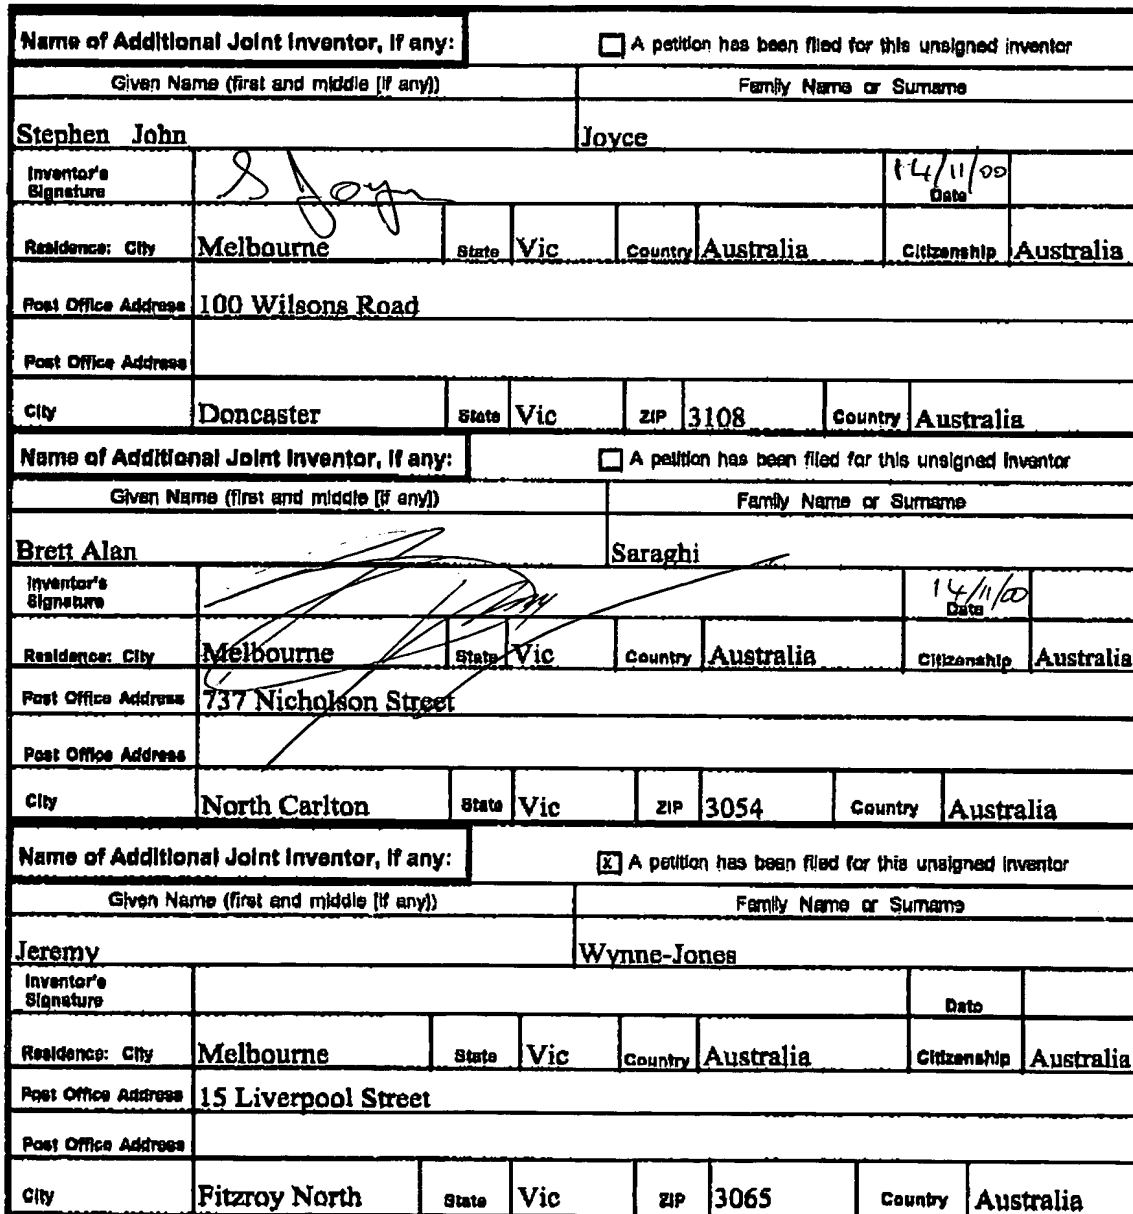 Name of Additional Joint Inventor, if any: A petition has been filed for this unsigned inventor
Given Name (first and middle [if any]) Family Name or Surname
Stephen John Joyce
Inventor's Signature S Joyce 14/11/00 Date
Residence: City Melbourne State Vic Country Australia Citizenship Australia
Post Office Address 100 Wilsons Road
Post Office Address
City Doncaster State Vic ZIP 3108 Country Australia
Name of Additional Joint Inventor, if any: A petition has been filed for this unsigned inventor
Given Name (first and middle [if any]) Family Name or Surname
Brett Alan Saraghi
Inventor's Signature 14/11/00 Date
Residence: City Melbourne State Vic Country Australia Citizenship Australia
Post Office Address 737 Nicholson Street
Post Office Address
City North Carlton State Vic ZIP 3054 Country Australia
Name of Additional Joint Inventor, if any: x A petition has been filed for this unsigned inventor
Given Name (first and middle [if any]) Family Name or Surname
Jeremy Wynne-Jones
Inventor's Signature Date
Residence: City Melbourne State Vic Country Australia Citizenship Australia
Post Office Address 15 Liverpool Street
Post Office Address
City Fitzroy North State Vic ZIP 3065 Country Australia